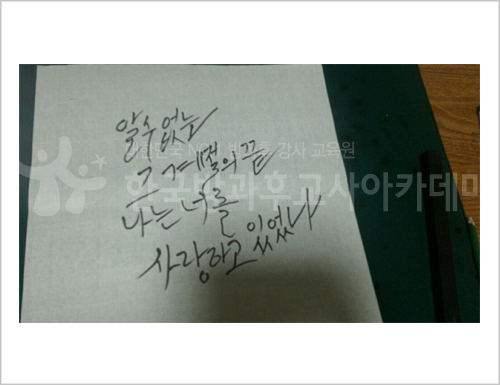 알수없는
그 계절의 끝
나는 너를
사랑하고 있었나
강사 교육원
한국방과후교사아카데미